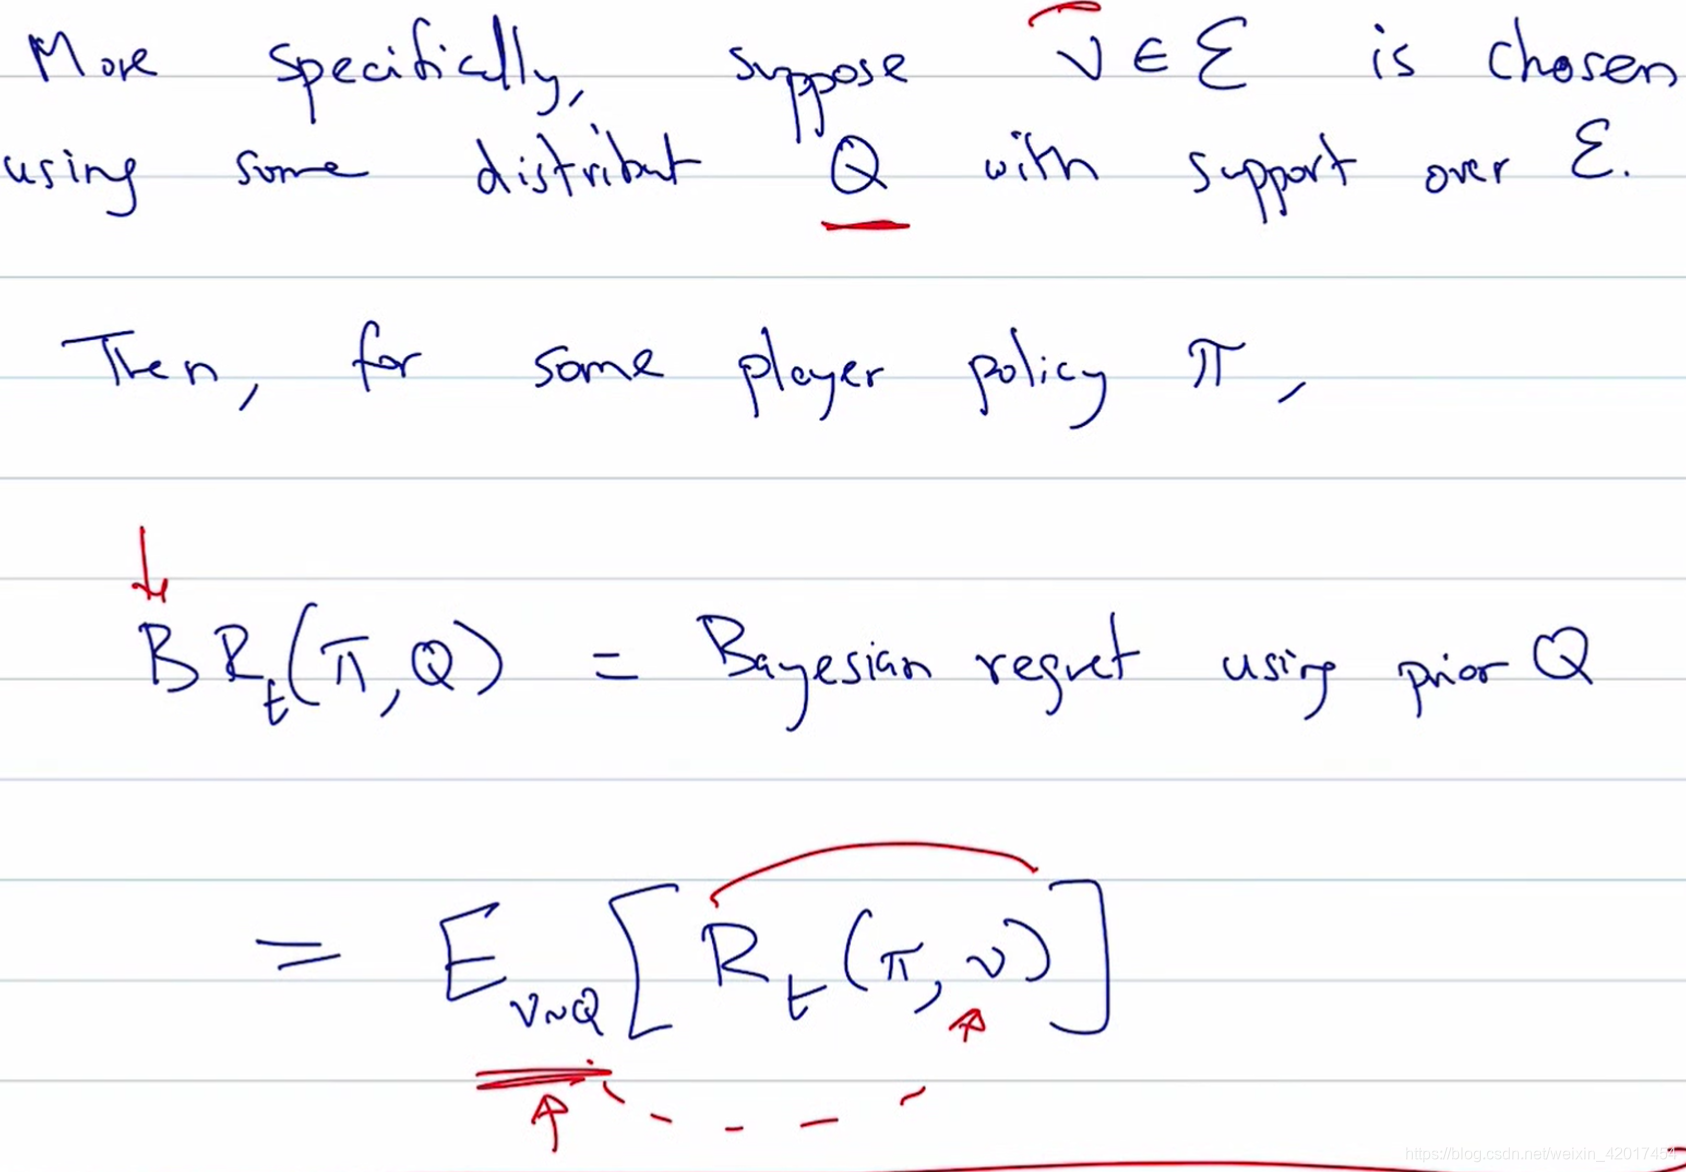 More specifically, suppose ν ∈ ℰ is chosen
using some distribut Q with support over ℰ.
Then, for some player policy π,
BR_t(π, Q) = Bayesian regret using prior Q
= E_{ν∼Q} [R_t(π, ν)]
https://blog.csdn.net/weixin_42017454